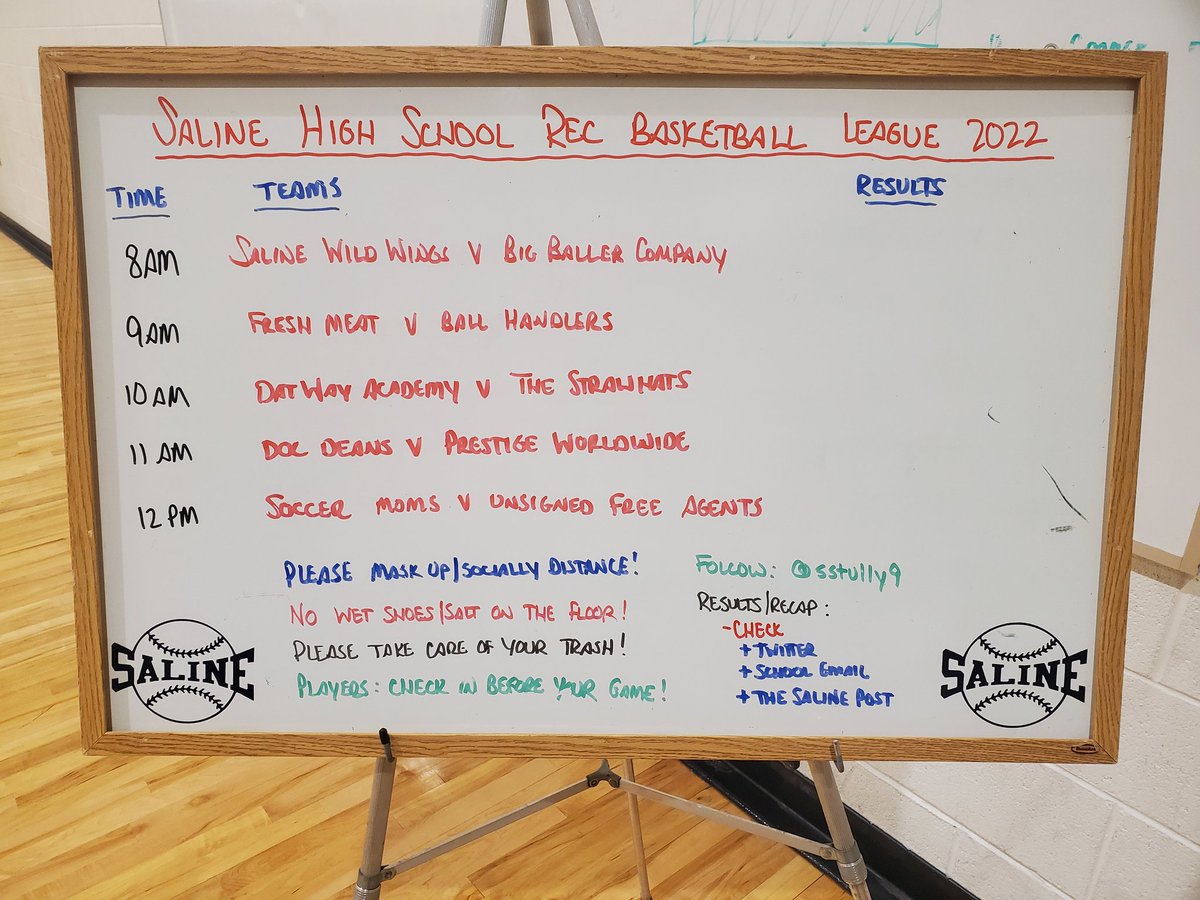 SALINE HIGH SCHOOL REC BASKETBALL LEAGUE 2022
TIME TEAMS RESULTS
8AM SALINE WILD WINGS V BIG BALLER COMPANY
9AM FRESH MEAT V BALL HANDLERS
10 AM DAT WAY ACADEMY V THE STRAWHATS
11 AM DOC DEANS V PRESTIGE WORLDWIDE
12 PM SOCCER MOMS V UNSIGNED FREE AGENTS
PLEASE MASK UP/SOCIALLY DISTANCE!
NO WET SHOES/SALT ON THE FLOOR!
PLEASE TAKE CARE OF YOUR TRASH!
PLAYERS: CHECK IN BEFORE YOUR GAME!
FOLLOW: @sstully9
RESULTS/RECAP:
-CHECK
+TWITTER
+SCHOOL EMAIL
+THE SALINE POST
SALINE
SALINE